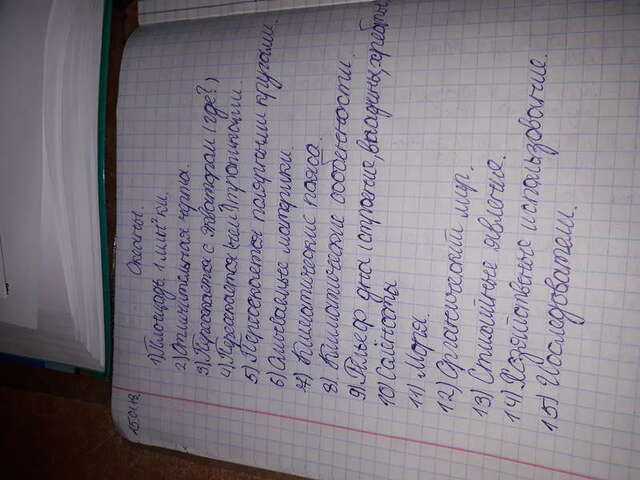 Океаны.
1) Площадь 1 млн² км.
2) Отличительная черта.
3) Пересекается с экватором (где?)
4) Пересекается ли тропиками.
5) Пересекается полярными кругами.
6) Омываемые материки.
7) Климатические пояса.
8) Климатические особенности.
9) Рельеф дна (строение, впадины, хребты
10) Солёность
11) Моря.
12) Органический мир.
13) Стихийные явление.
14) Хозяйственные использование.
15) Исследователи.